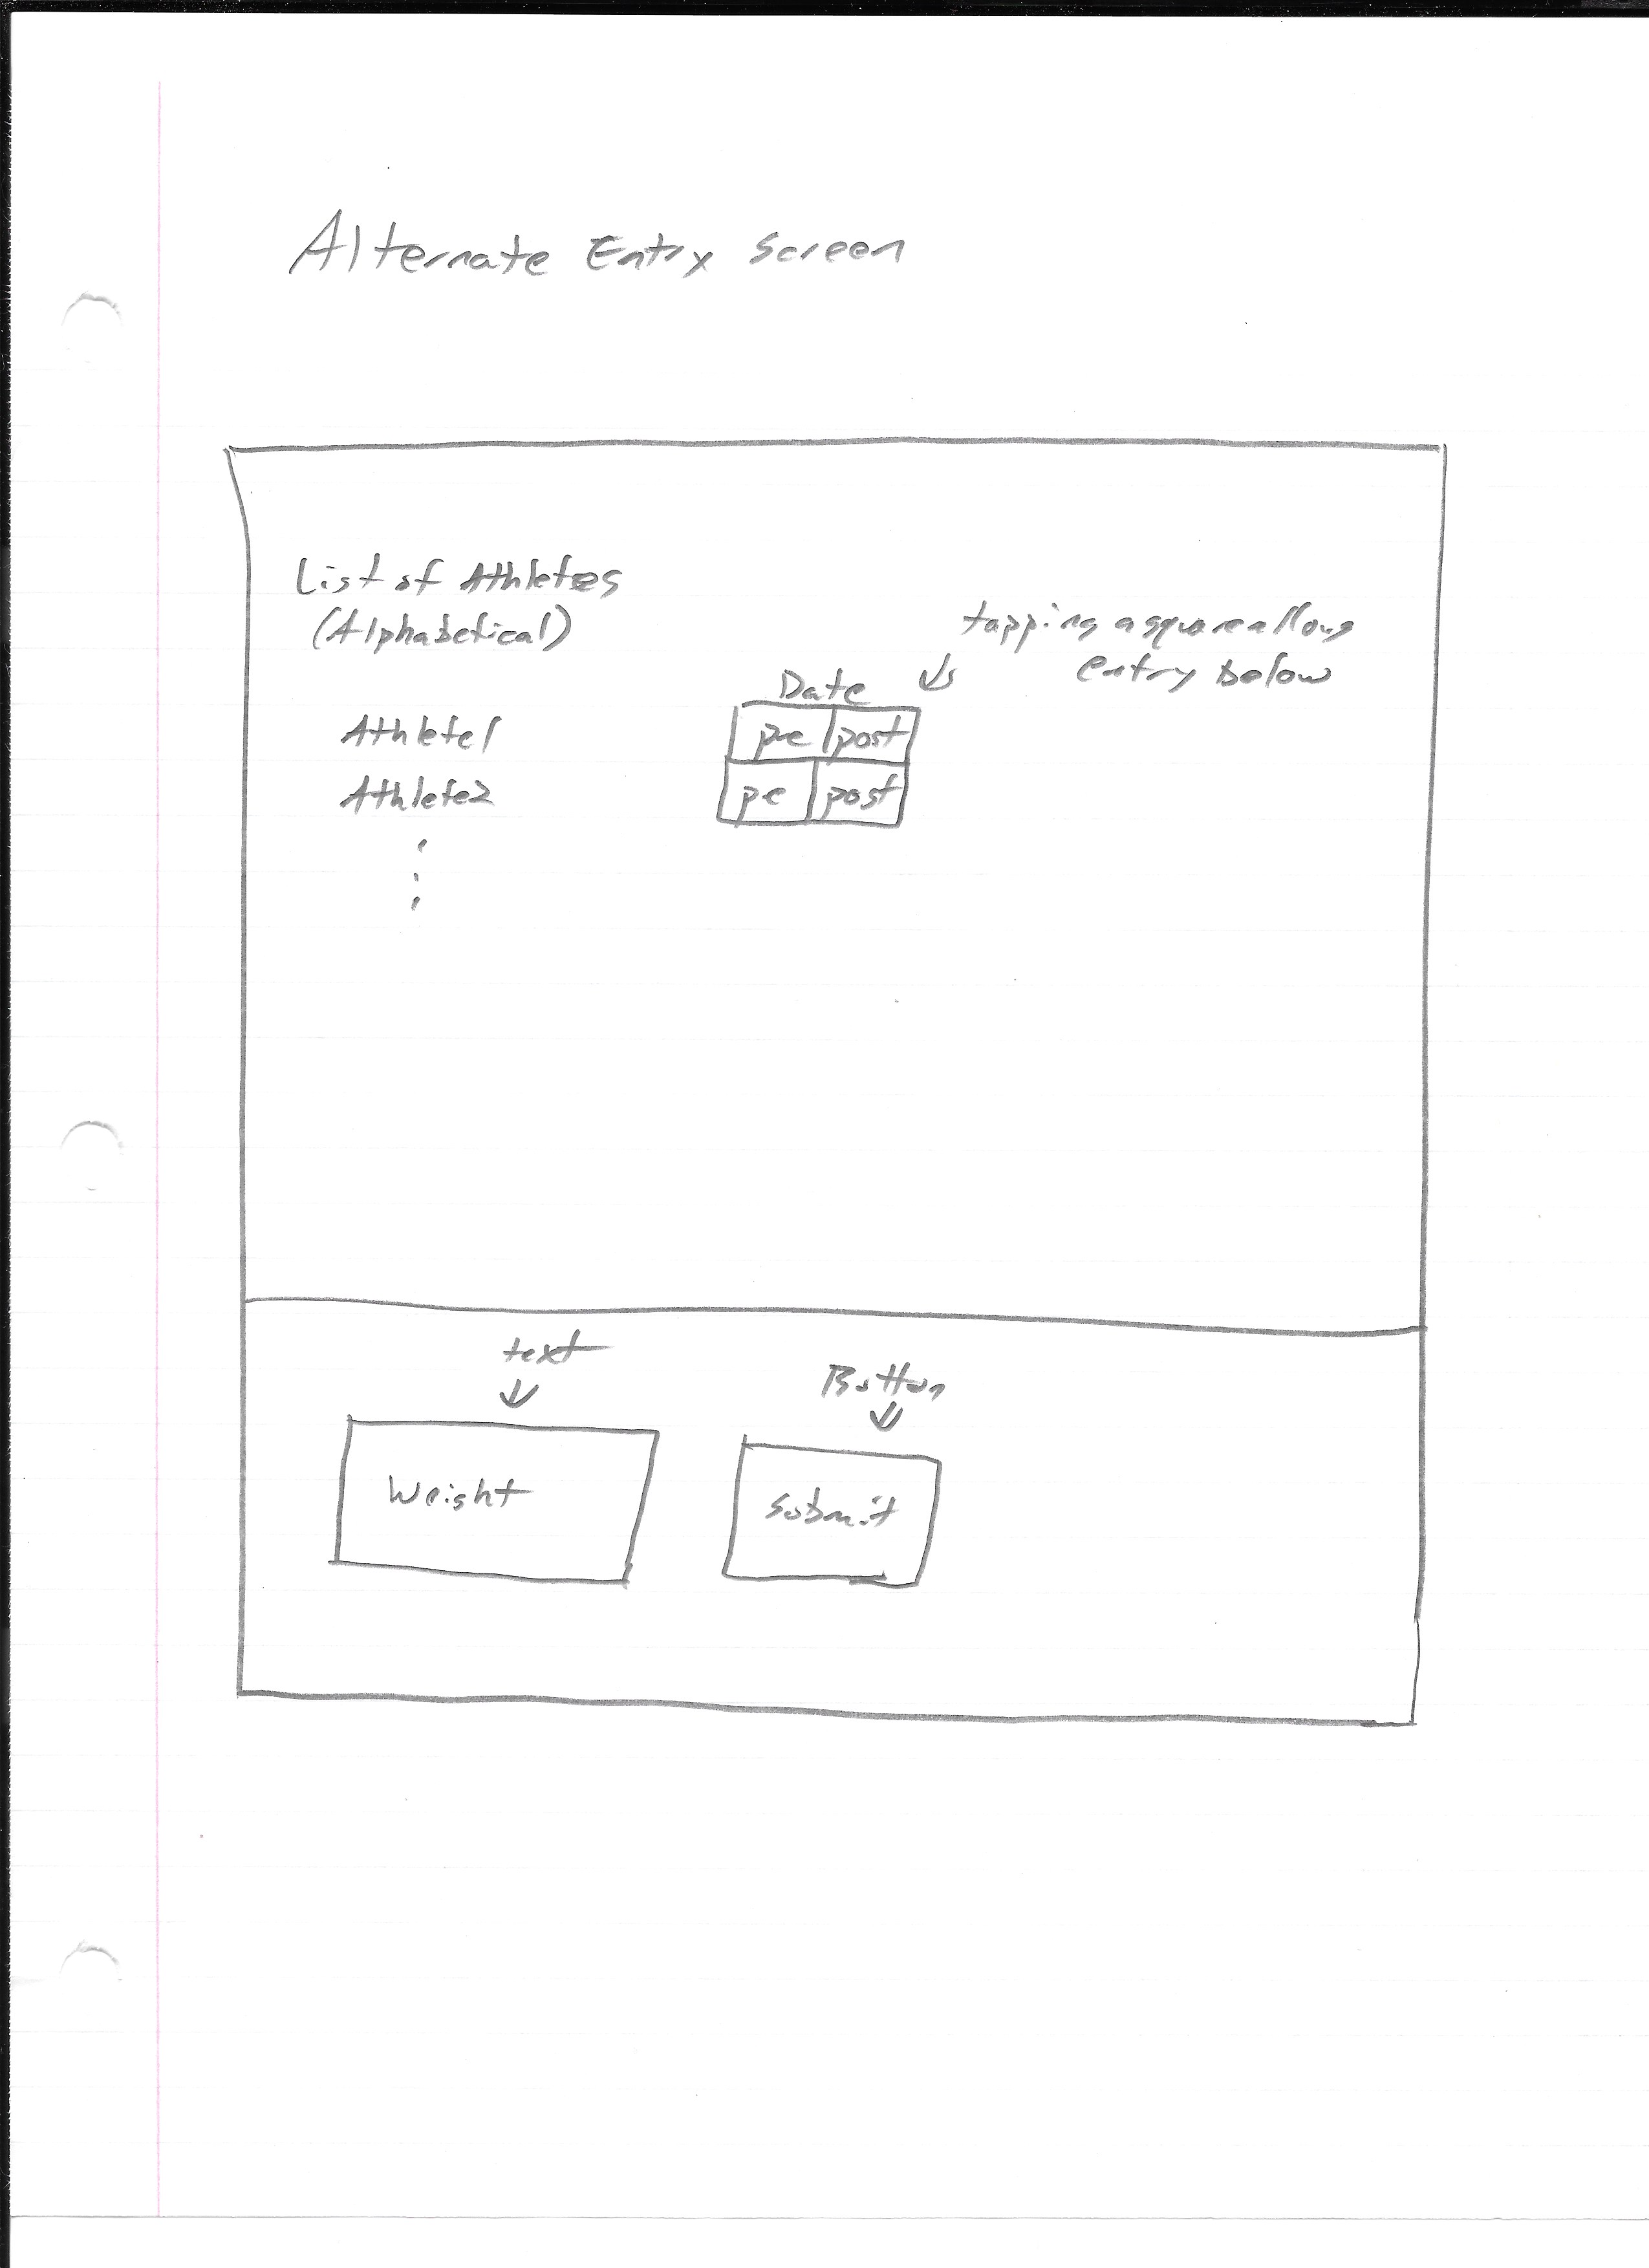 Alternate Entry Screen
List of Athletes
(Alphabetical)
tapping a square allows
entry below
Date
Athlete1
pre post
Athlete2
pre post
text
Button
Weight
Submit